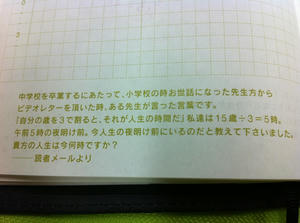 中学校を卒業するにあたって、小学校の時お世話になった先生方から
ビデオレターを頂いた時、ある先生が言った言葉です。
「自分の歳を3で割ると、それが人生の時間だ」私達は15歳÷3=5時。
午前5時の夜明け前。今人生の夜明け前にいるのだと教えて下さいました。
貴方の人生は今何時ですか?
――読者メールより